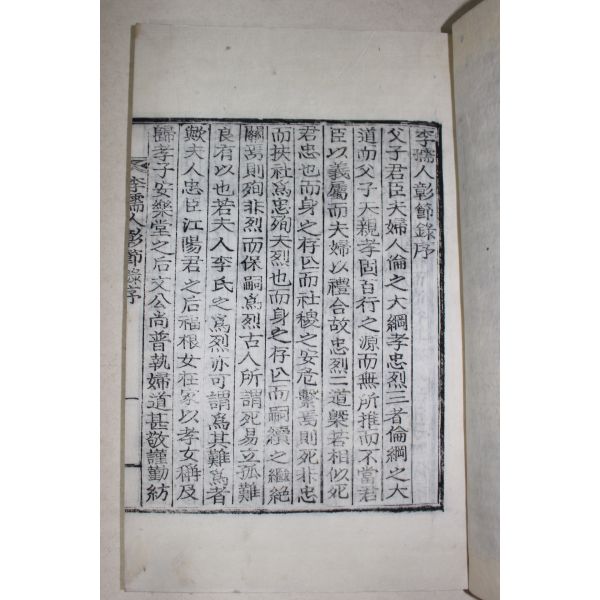 李孺人彰節錄序
父子君臣夫婦人倫之大綱孝忠烈三者倫綱之大
道而父子大親孝固百行之源而無所推而不當君
臣以義屬而夫婦以禮合故忠烈二道槩若相似死
君忠也而身之存亾而社稷之安危繫焉則死非忠
而扶社爲忠殉夫烈也而身之存亾而嗣續之繼絶
關焉則殉非烈而保嗣爲烈古人所謂死易立孤難
良有以也若夫人李氏之爲烈亦可謂爲其難爲者
歟夫人忠臣江陽君之后福根女在家以孝女稱及
歸孝子安樂堂之后文公尚普執婦道甚敬謹勤紡
李孺人彰節錄序
一